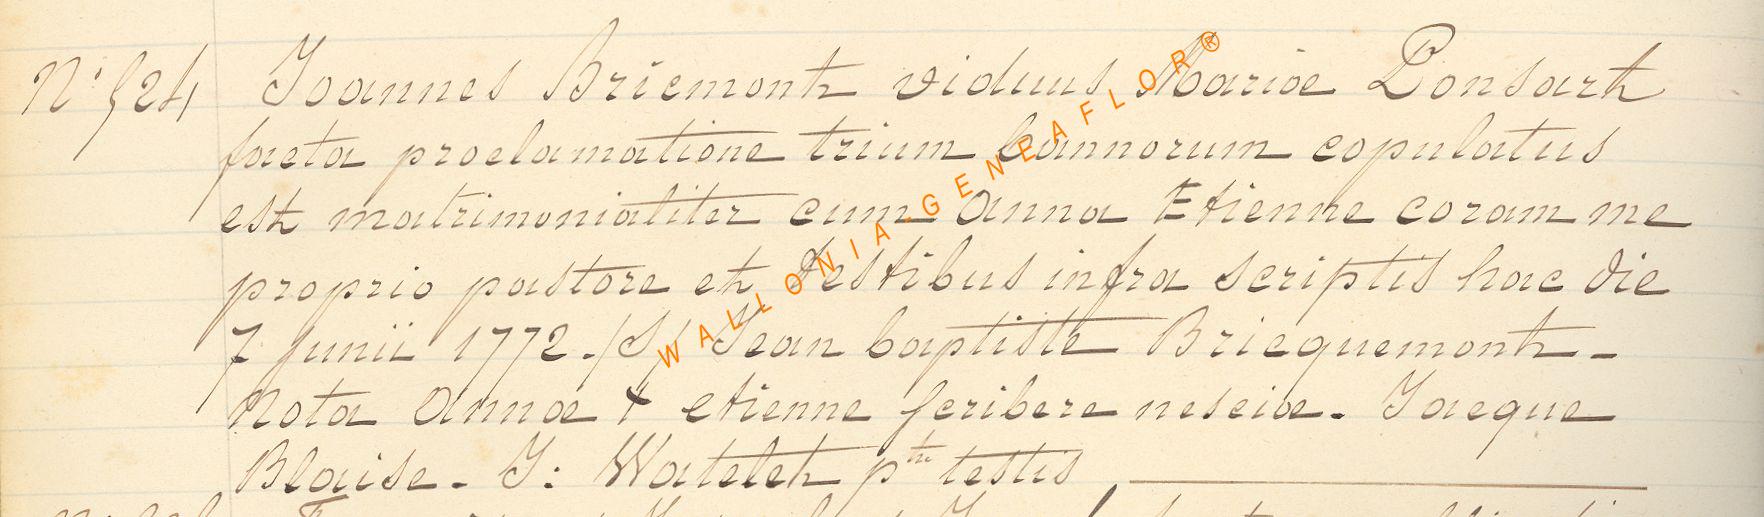 N° 524 Joannes Bricmont viduus Mariæ Ponsart
facta proclamatione trium bannorum copulatus
est matrimonialiter cum Anna Etienne coram me
proprio pastore et testibus infra scriptis hac die
7 junii 1772. /S/ Jean baptiste Bricquemont –
Nota Annæ + etienne scribere nesciæ. Jacque
Blaise. J: Watelet p^tr testis
WALLONIA-GENEAFLOR®